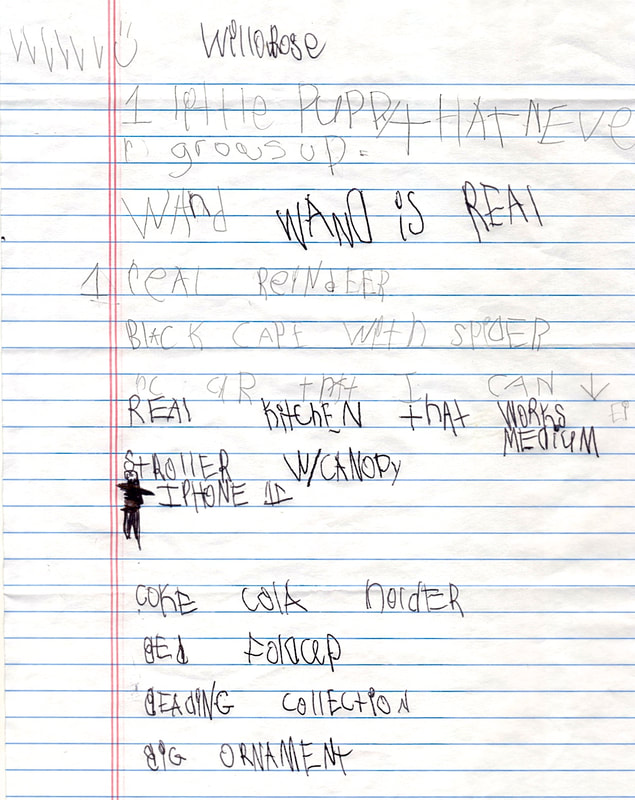 Willorose
1 little PUPPY tHAt NEVE
r grows up.
WANd WAND iS REAl
1 reAl REiNdEER
BlACK CAPE With SPidER
cAR thAt I CAN
REAl KitCHEN tHAt WORKS
MEDIUM
StROLLER W/CANOPY
IPHONE 12
COKE COlA HOldER
BEd FOldUP
BEADING COLLECTION
BIG ORNAMENt